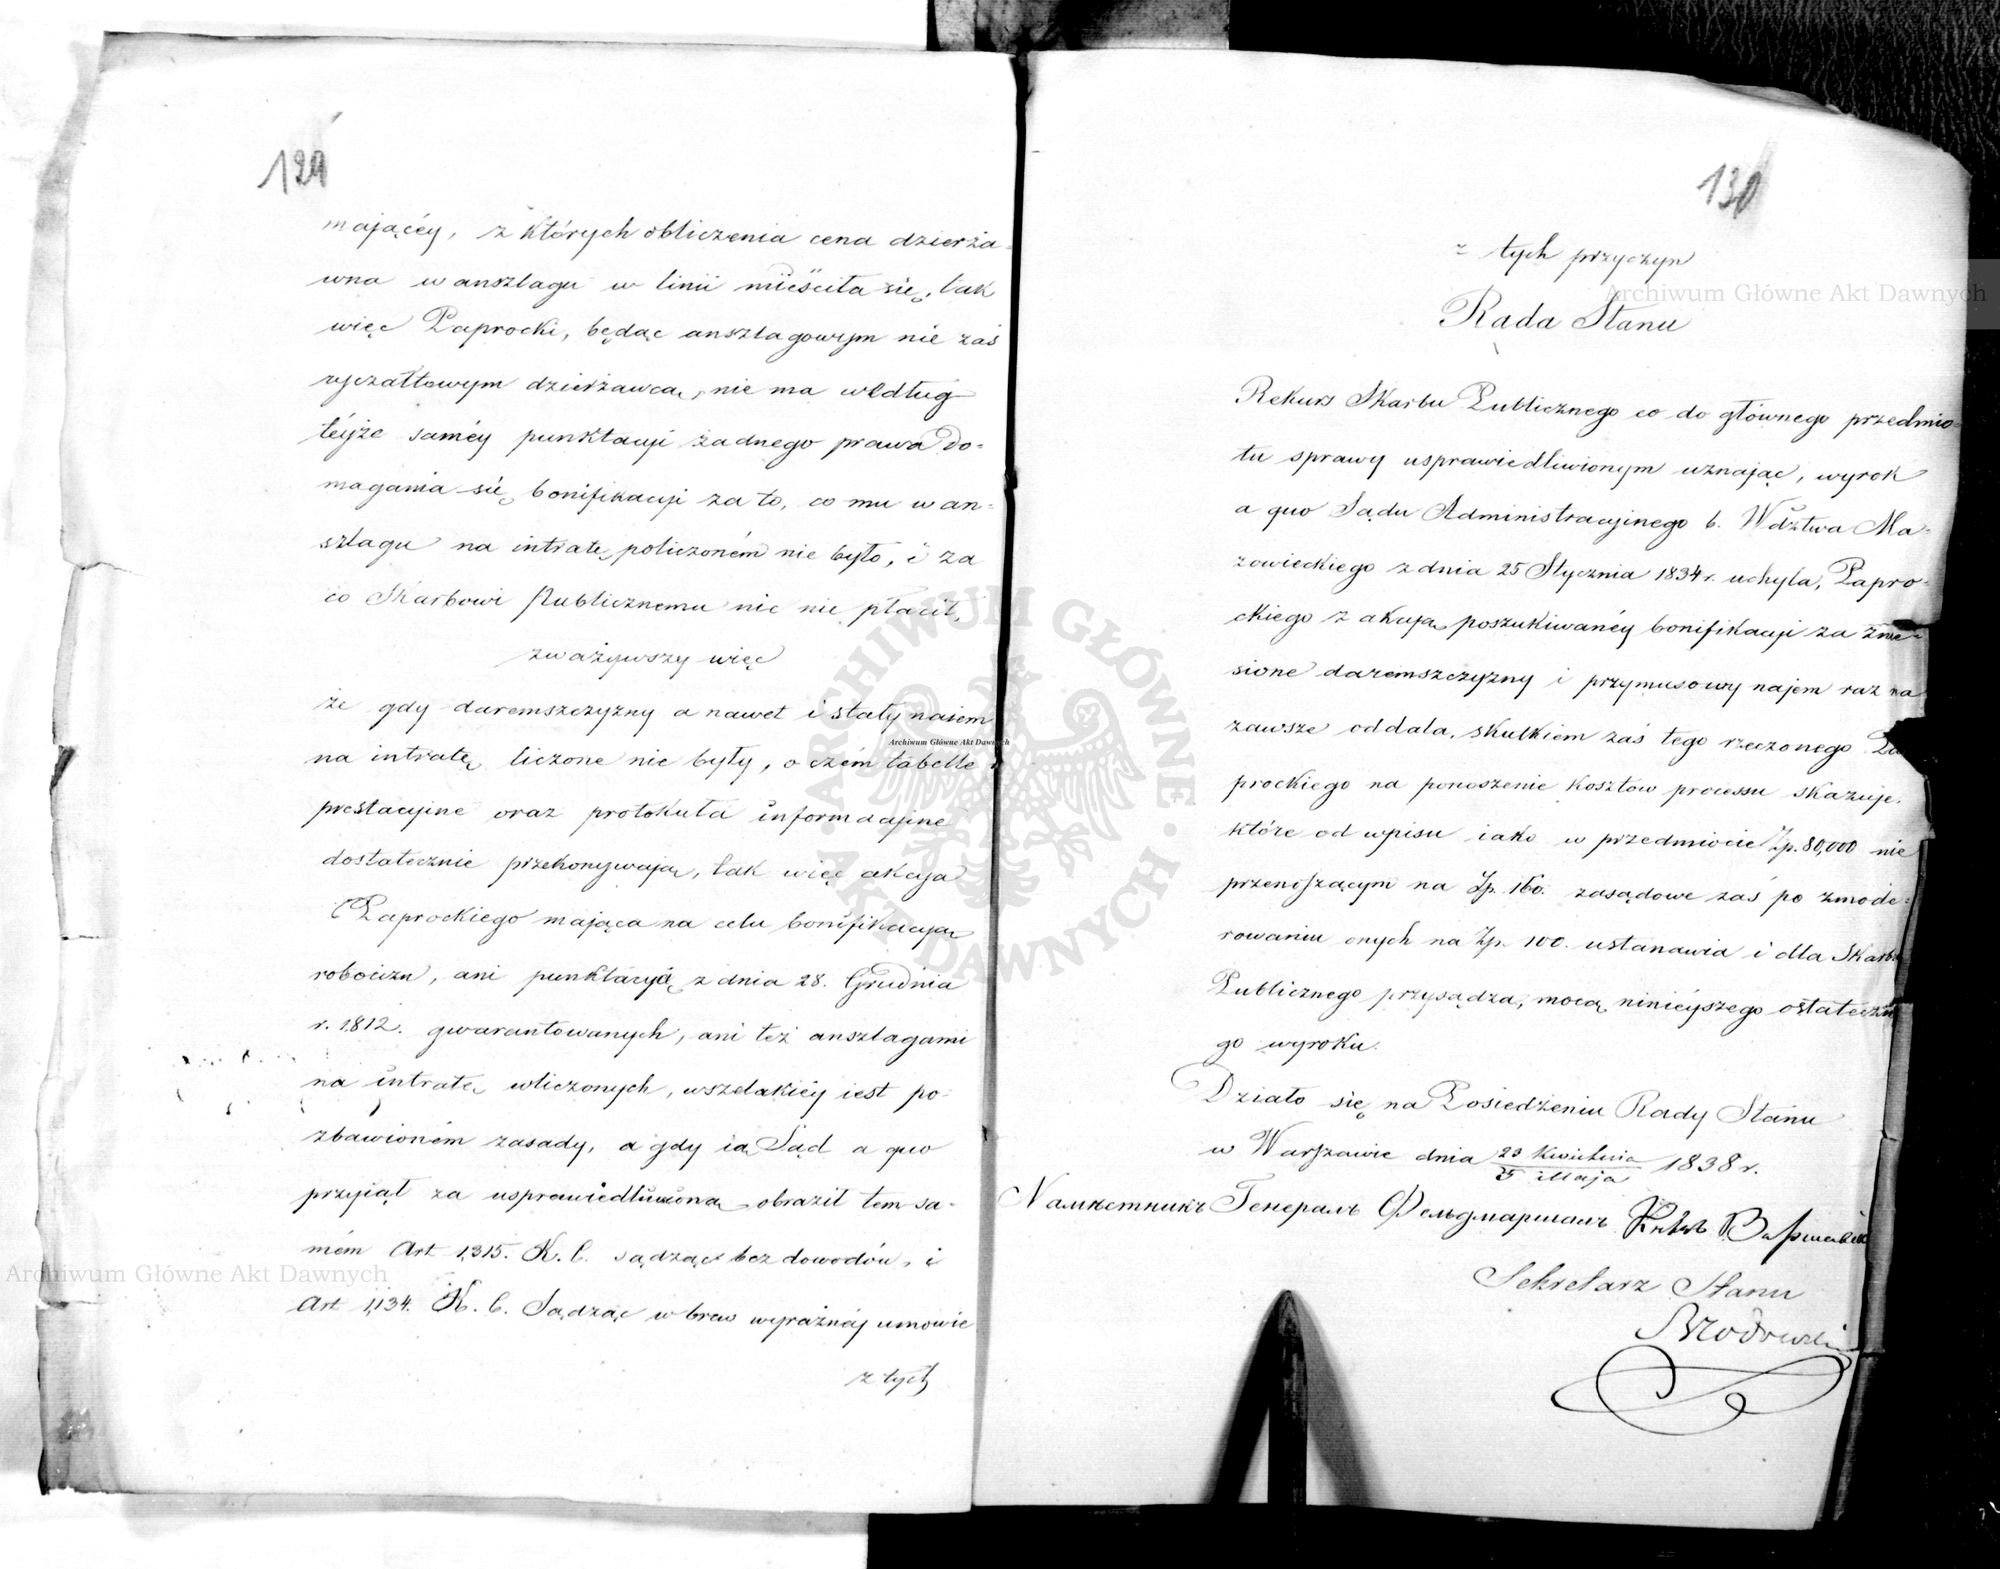 129
mającéy, z których obliczenia cena dzierża-
wna w anszlagu w linii mieściła się, tak
więc Paprocki, będąc anszlagowym nie zaś
ryczałtowym dzierżawcą, nie ma według
téyże saméy punktacyi żadnego prawa do-
magania się bonifikacyi za to, co mu w an-
szlagu na intratę policzoném nie było, i za
co Skarbowi Publicznemu nic nie płacił,
zważywszy więc
że gdy daremszczyzny a nawet i stały naiem
na intratę liczone nie były, o czém tabelle
prestacyine oraz protokuła informacyine
dostatecznie przekonywaią, tak więc akcya
Paprockiego maiąca na celu bonifikacyą
robocizn, ani punktacyą z dnia 28. Grudnia
r. 1812. gwarantowanych, ani też anszlagami
na intratę wliczonych, wszelakiéy iest po-
zbawioném zasady, a gdy ią Sąd a quo
przyiął za usprawiedliwioną, obraził tem sa-
mém Art 1,315. K. C. sądząc bez dowodów, i
Art 1,134. K. C. Sądząc wbrew wyraźnéy umowie
z tych
130
z tych przyczyn
Rada Stanu
Rekurs Skarbu Publicznego co do głównego przedmio-
tu sprawy usprawiedliwionym uznając, wyrok
a quo Sądu Administracyjnego b. Wdztwa Ma-
zowieckiego z dnia 25 Stycznia 1834 r. uchyla, Papro-
ckiego z akcyą poszukiwanéy bonifikacyi za znie-
sione daremszczyzny i przymusowy najem raz na
zawsze oddala, skutkiem zaś tego rzeczonego Pa
prockiego na ponoszenie kosztów processu skazuje,
które od wpisu iako w przedmiocie Zp. 80,000 nie
przenoszącym na Zp. 160. zasądowe zaś po zmode-
rowaniu onych na Zp. 100. ustanawia i dla Skarbu
Publicznego przysądza, mocą ninieyszego ostateczne
go wyroku.
Działo się na Posiedzeniu Rady Stanu
w Warszawie dnia 23 Kwietnia / 5 Maja 1838 r.
Намѣстникъ Генералъ Фельдмаршалъ Князь Варшавскій
Sekretarz Stanu
Brzozowski
Archiwum Główne Akt Dawnych
Archiwum Główne Akt Dawnych
Archiwum Główne Akt Dawnych
ARCHIWUM GŁÓWNE AKT DAWNYCH